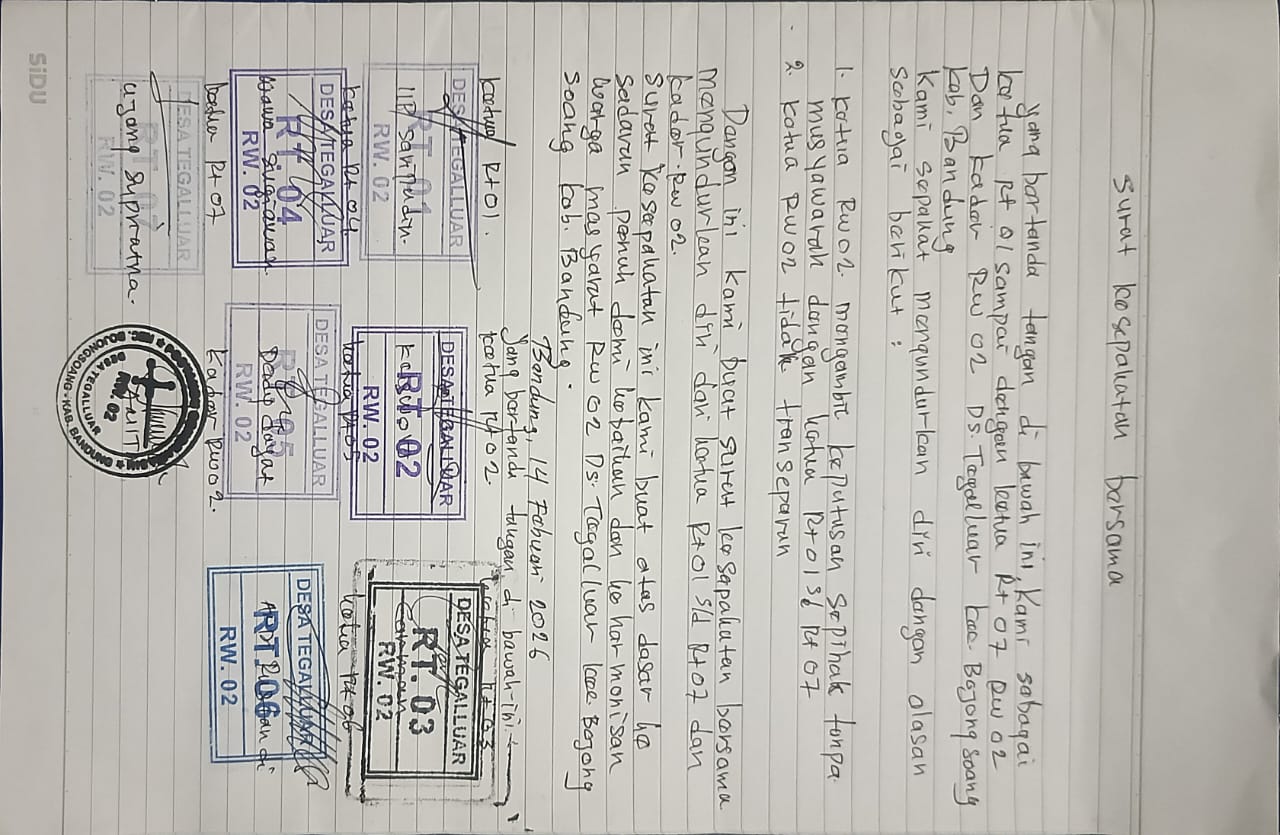 Surat kesepakatan bersama
yang bertanda tangan di bawah ini, Kami sebagai
ketua Rt 01 sampai dengan ketua Rt 07 RW 02
Dan kader RW 02 Ds. Tegalluar kec Bojongsoang
kab. Bandung
Kami sepakat mengundurkan diri dengan alasan
sebagai berikut :
1. ketua RW 02 mengambil keputusan sepihak tanpa
musyawarah dengan ketua Rt 01 s/d Rt 07
2. ketua RW 02 tidak transeparan
Dengan ini kami buat surat kesepakatan bersama
mengundurkan diri dari ketua Rt 01 s/d Rt 07 dan
kader RW 02.
surat kesepakatan ini kami buat atas dasar ke
sadaran penuh demi kebaikan dan ke harmonisan
warga masyarat RW 02 Ds. Tegalluar kec Bojong
soang kab. Bandung.
Bandung, 14 Febuari 2026
yang bertanda tangan di bawah-ini
ketua Rt 01. ketua Rt 02 ketua Rt 03
DESA TEGALLUAR DESA TEGALLUAR DESA TEGALLUAR
RT 01 RT 02 RT. 03
IIP Saripudin.
RW. 02 RW. 02 RW. 02
ketua Rt 04 ketua Rt 05 ketua Rt 06
DESA TEGALLUAR DESA TEGALLUAR DESA TEGAL
RT 04 RT 05 RT 06
Gunawan Dedy
RW. 02 RW. 02 RW. 02
ketua Rt 07 kader RW 02.
DESA TEGALLUAR
RT 07
ujang supriatna.
RW. 02
RW. 02
DESA TEGALLUAR
BOJONGSOANG - KAB. BANDUNG
SiDU